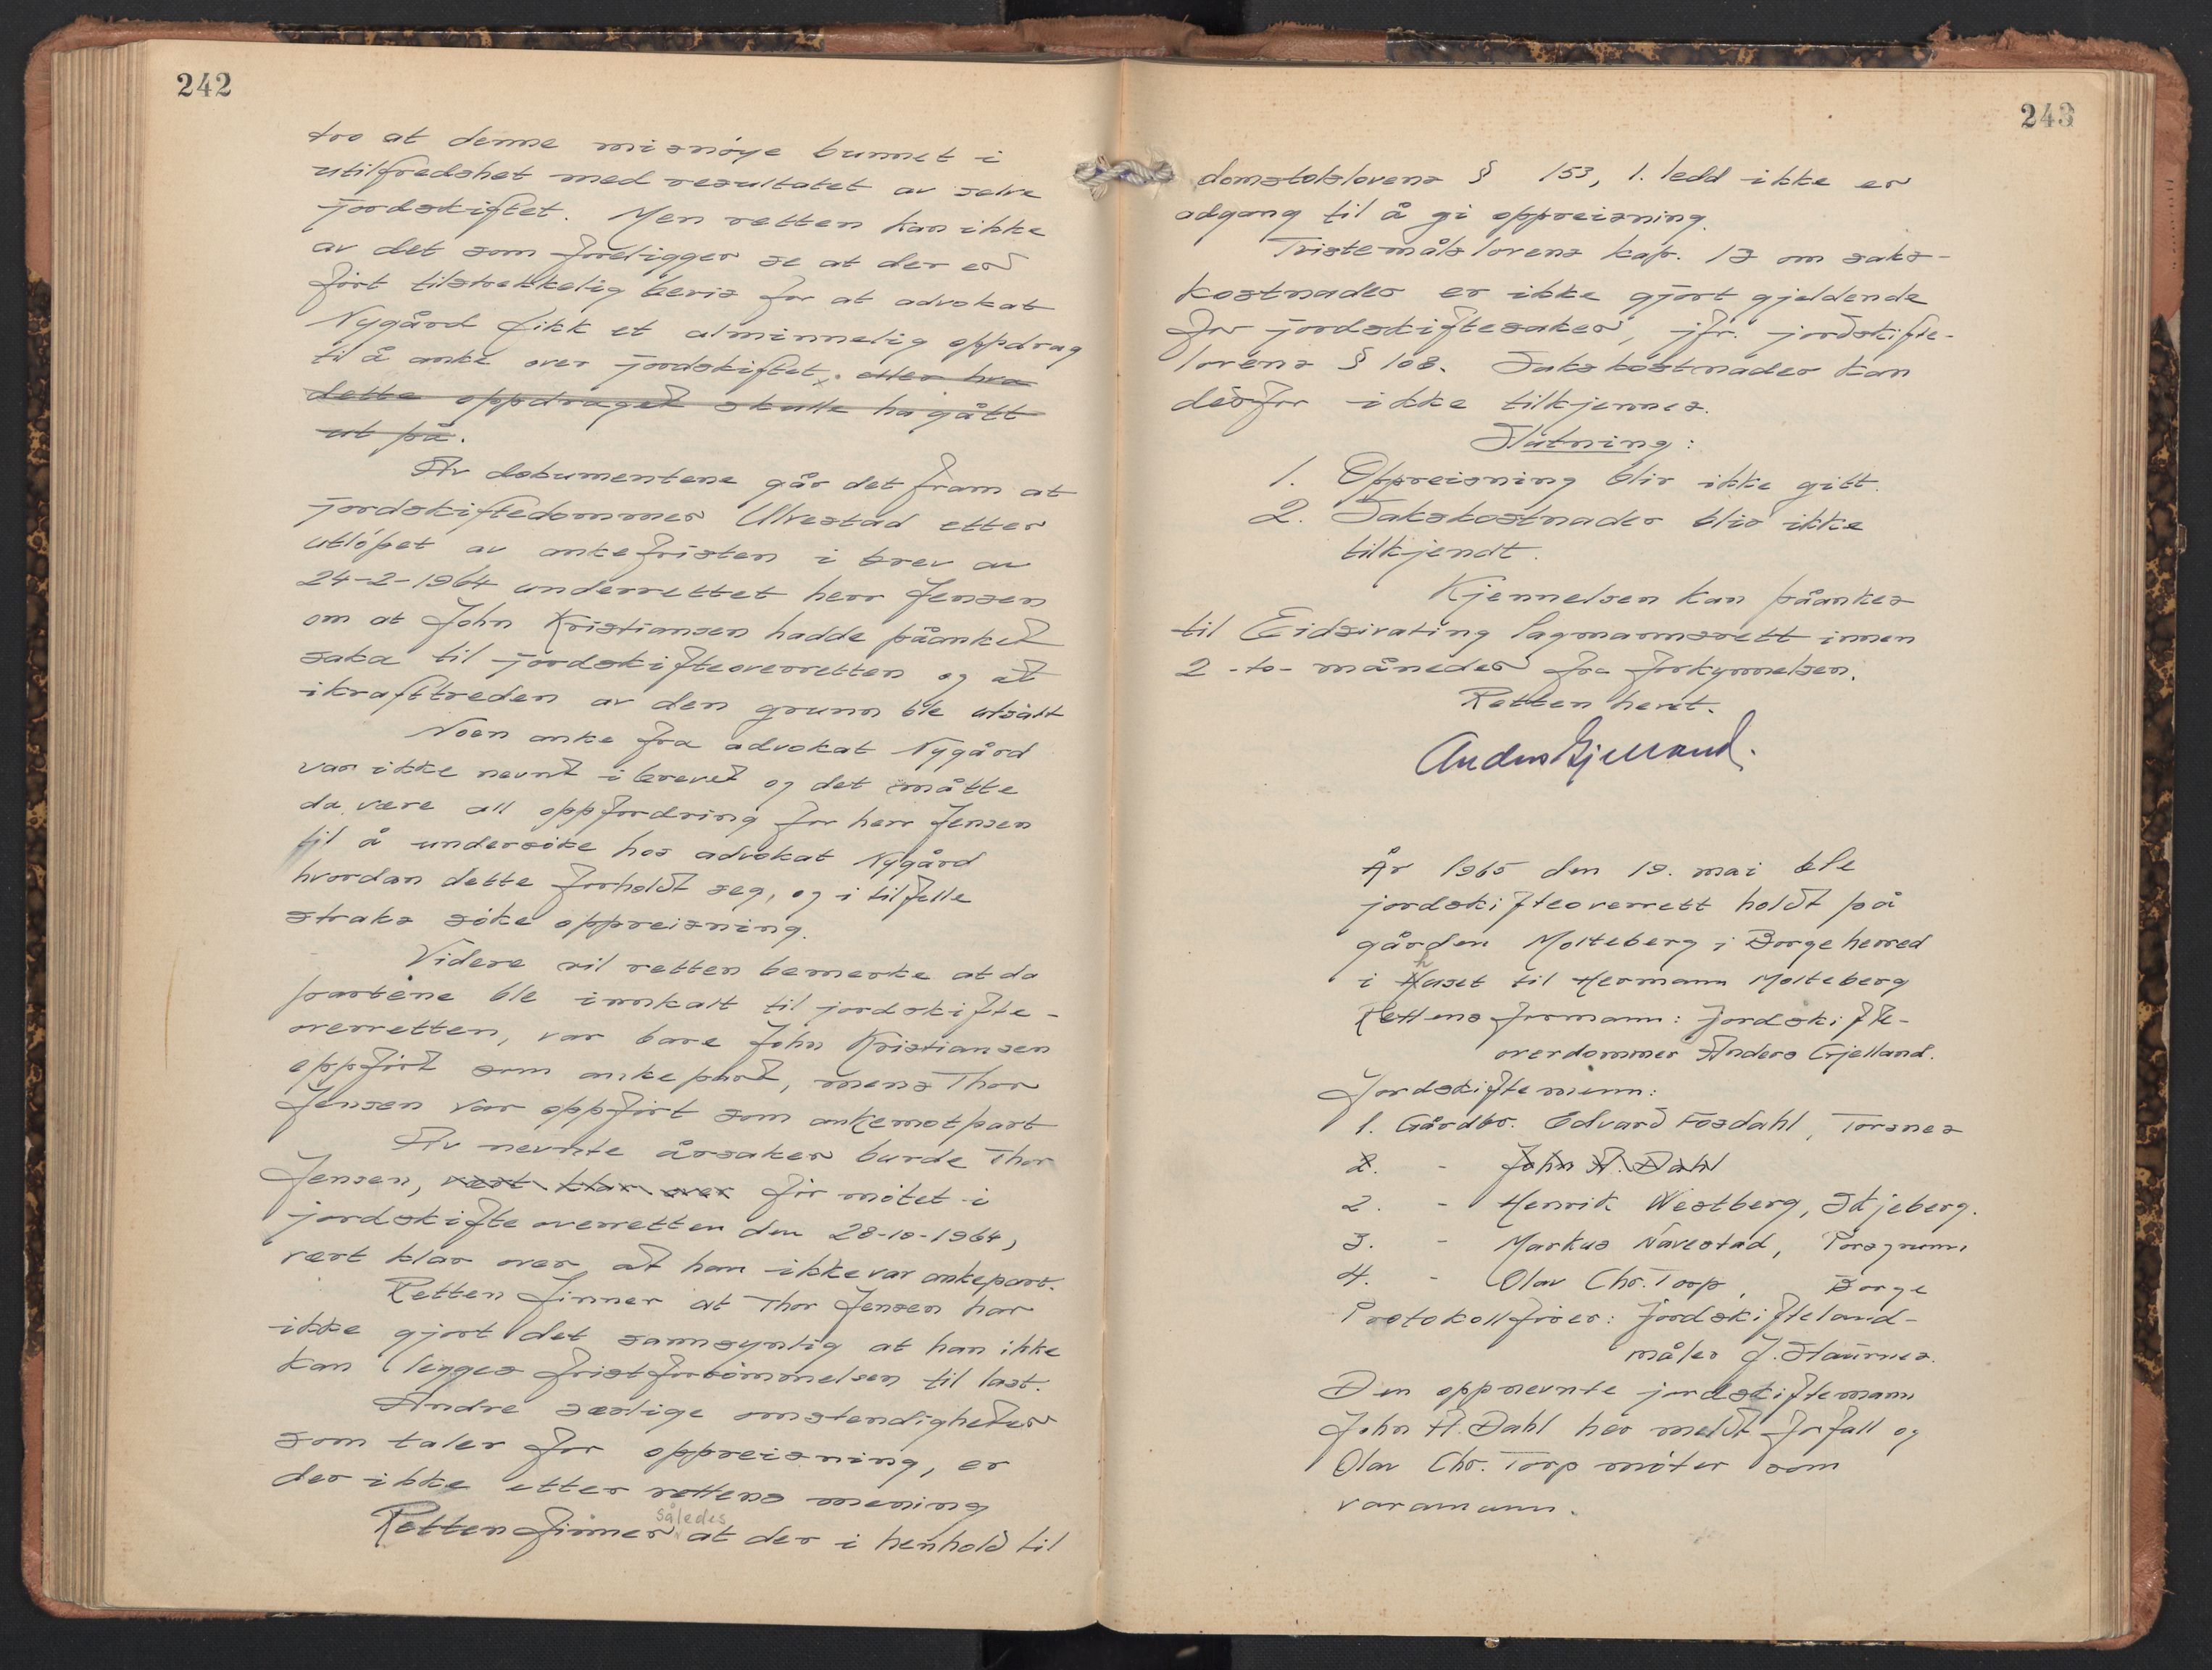 242
tro at denne misnøye bunnet i
utilfredshet med resultatet av selve
jordskiftet. Men retten kan ikke
av det som foreligger se at der er
ført tilstrekkelig bevis for at advokat
Nygård fikk et alminnelig oppdrag
til å anke over jordskiftet, eller hva
dette oppdraget skulle ha gått
ut på.
Av dokumentene går det fram at
jordskiftedommer Ulvestad etter
utløpet av ankefristen i brev av
24-2-1964 underrettet herr Jensen
om at John Kristiansen hadde påanket
saka til jordskifteoverretten og at
ikrafttreden av den grunn ble utsatt
Noen anke fra advokat Nygård
var ikke nevnt i brevet og det måtte
da være all oppfordring for herr Jensen
til å undersøke hos advokat Nygård
hvordan dette forholdt seg, og i tilfelle
straks søke oppreisning.
Videre vil retten bemerke at da
partene ble innkalt til jordskifte-
overretten, var bare John Kristiansen
oppført som ankepart, mens Thor
Jensen var oppført som ankemotpart
Av nevnte årsaker burde Thor
Jensen, vært klar over før møtet i
jordskifteoverretten den 28-10-1964,
vært klar over at han ikke var ankepart.
Retten finner at Thor Jensen har
ikke gjort det sannsynlig at han ikke
kan legges fristforsømmelsen til last.
Andre særlige omstendigheter
som taler for oppreisning, er
der ikke etter rettens mening
Retten finner således at der i henhold til
243
domstolslovens § 153, 1. ledd ikke er
adgang til å gi oppreisning.
Tvistemålslovens kap. 13 om saks-
kostnader er ikke gjort gjeldende
for jordskiftesaker, jfr. jordskifte-
lovens § 108. Sakskostnader kan
derfor ikke tilkjennes.
Slutning:
1. Oppreisning blir ikke gitt.
2. Sakskostnader blir ikke
tilkjendt.
Kjennelsen kan påankes
til Eidsivating lagmannsrett innen
2 -to- måneder fra forkynnelsen.
Retten hevt.
Anders Gjelland.
År 1965 den 19. mai ble
jordskifteoverrett holdt på
gården Molteberg i Borge herred
i huset til Hermann Molteberg
Rettens formann: Jordskifte-
overdommer Anders Gjelland.
Jordskiftemenn:
1. Gårdbr. Edvard Fosdahl, Torsnes
2. - John A. Dahl
2. - Henrik Westberg, Skjeberg.
3. - Markus Navestad,
4. - Olav Chr. Torp, Borge
Protokollfører: Jordskifteland-
måler J. Staurnes.
Den oppnevnte jordskiftemann
John A. Dahl har meldt forfall og
Olav Chr. Torp møter som
varamann.